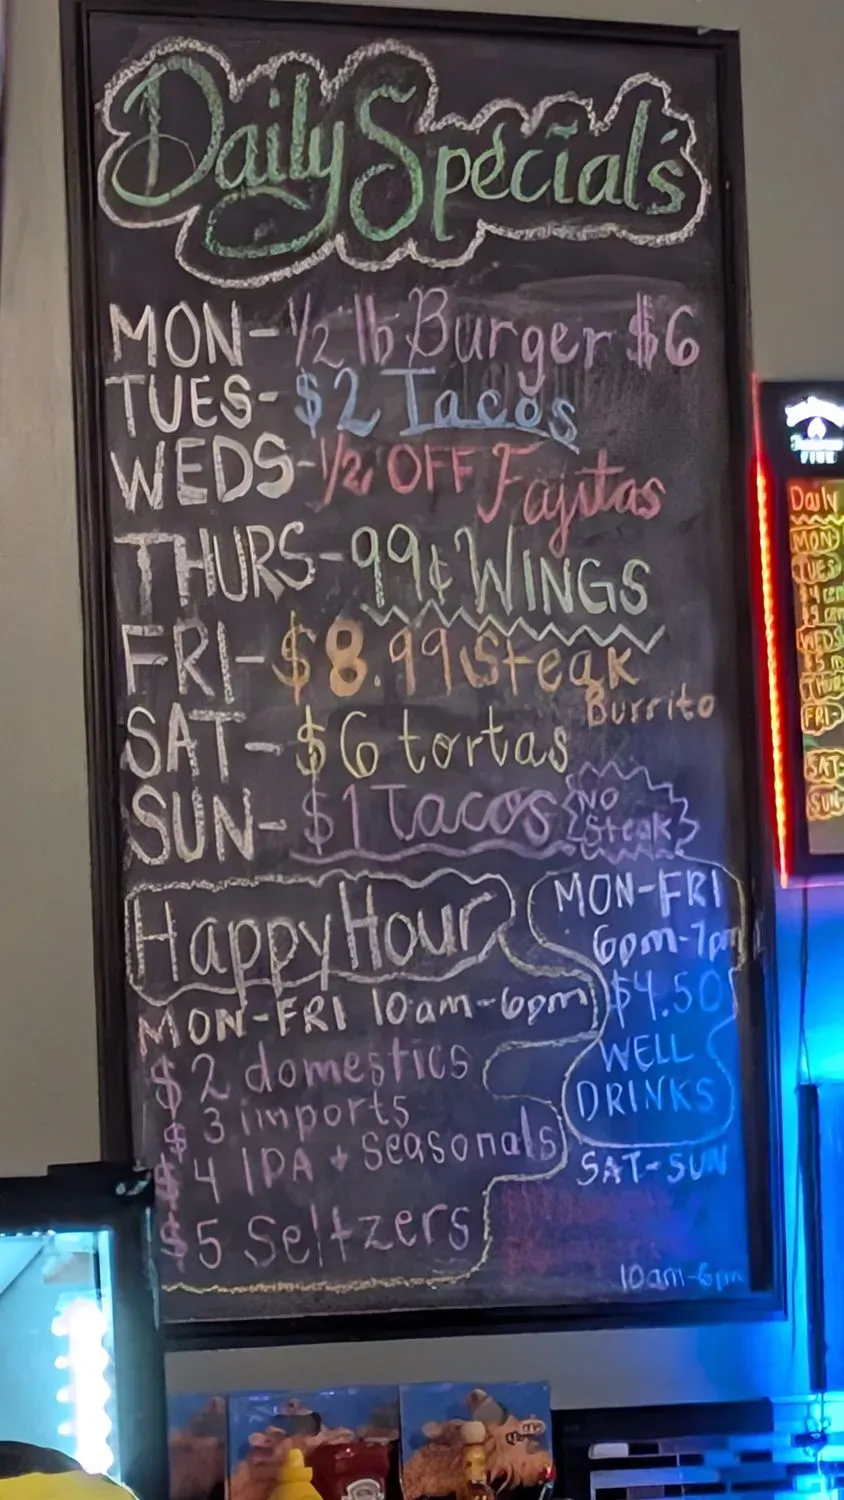 Daily Special's
MON-1/2 lb Burger $6
TUES-$2 Tacos
WEDS-1/2 OFF Fajitas
THURS-99¢ WINGS
FRI-$8.99 Steak
Burrito
SAT-$6 tortas
SUN-$1 Tacos
No
Steak
Happy Hour
MON-FRI 10am-6pm
$2 domestics
$3 imports
$4 IPA + Seasonals
$5 Seltzers
MON-FRI
6pm-7pm
$4.50
WELL
DRINKS
SAT-SUN
10am-6pm
Daily
MON
TUES
WEDS
THUR
FRI-
SAT-
SUN